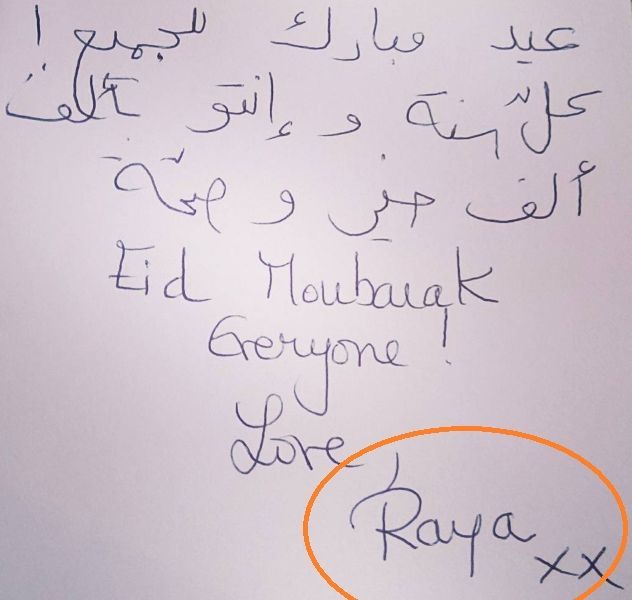 عيد مبارك للجميع !
كلّ سنة و إنتو بألف
ألف خير و صحّة
Eid Moubarak
Everyone !
Love,
Raya
xx